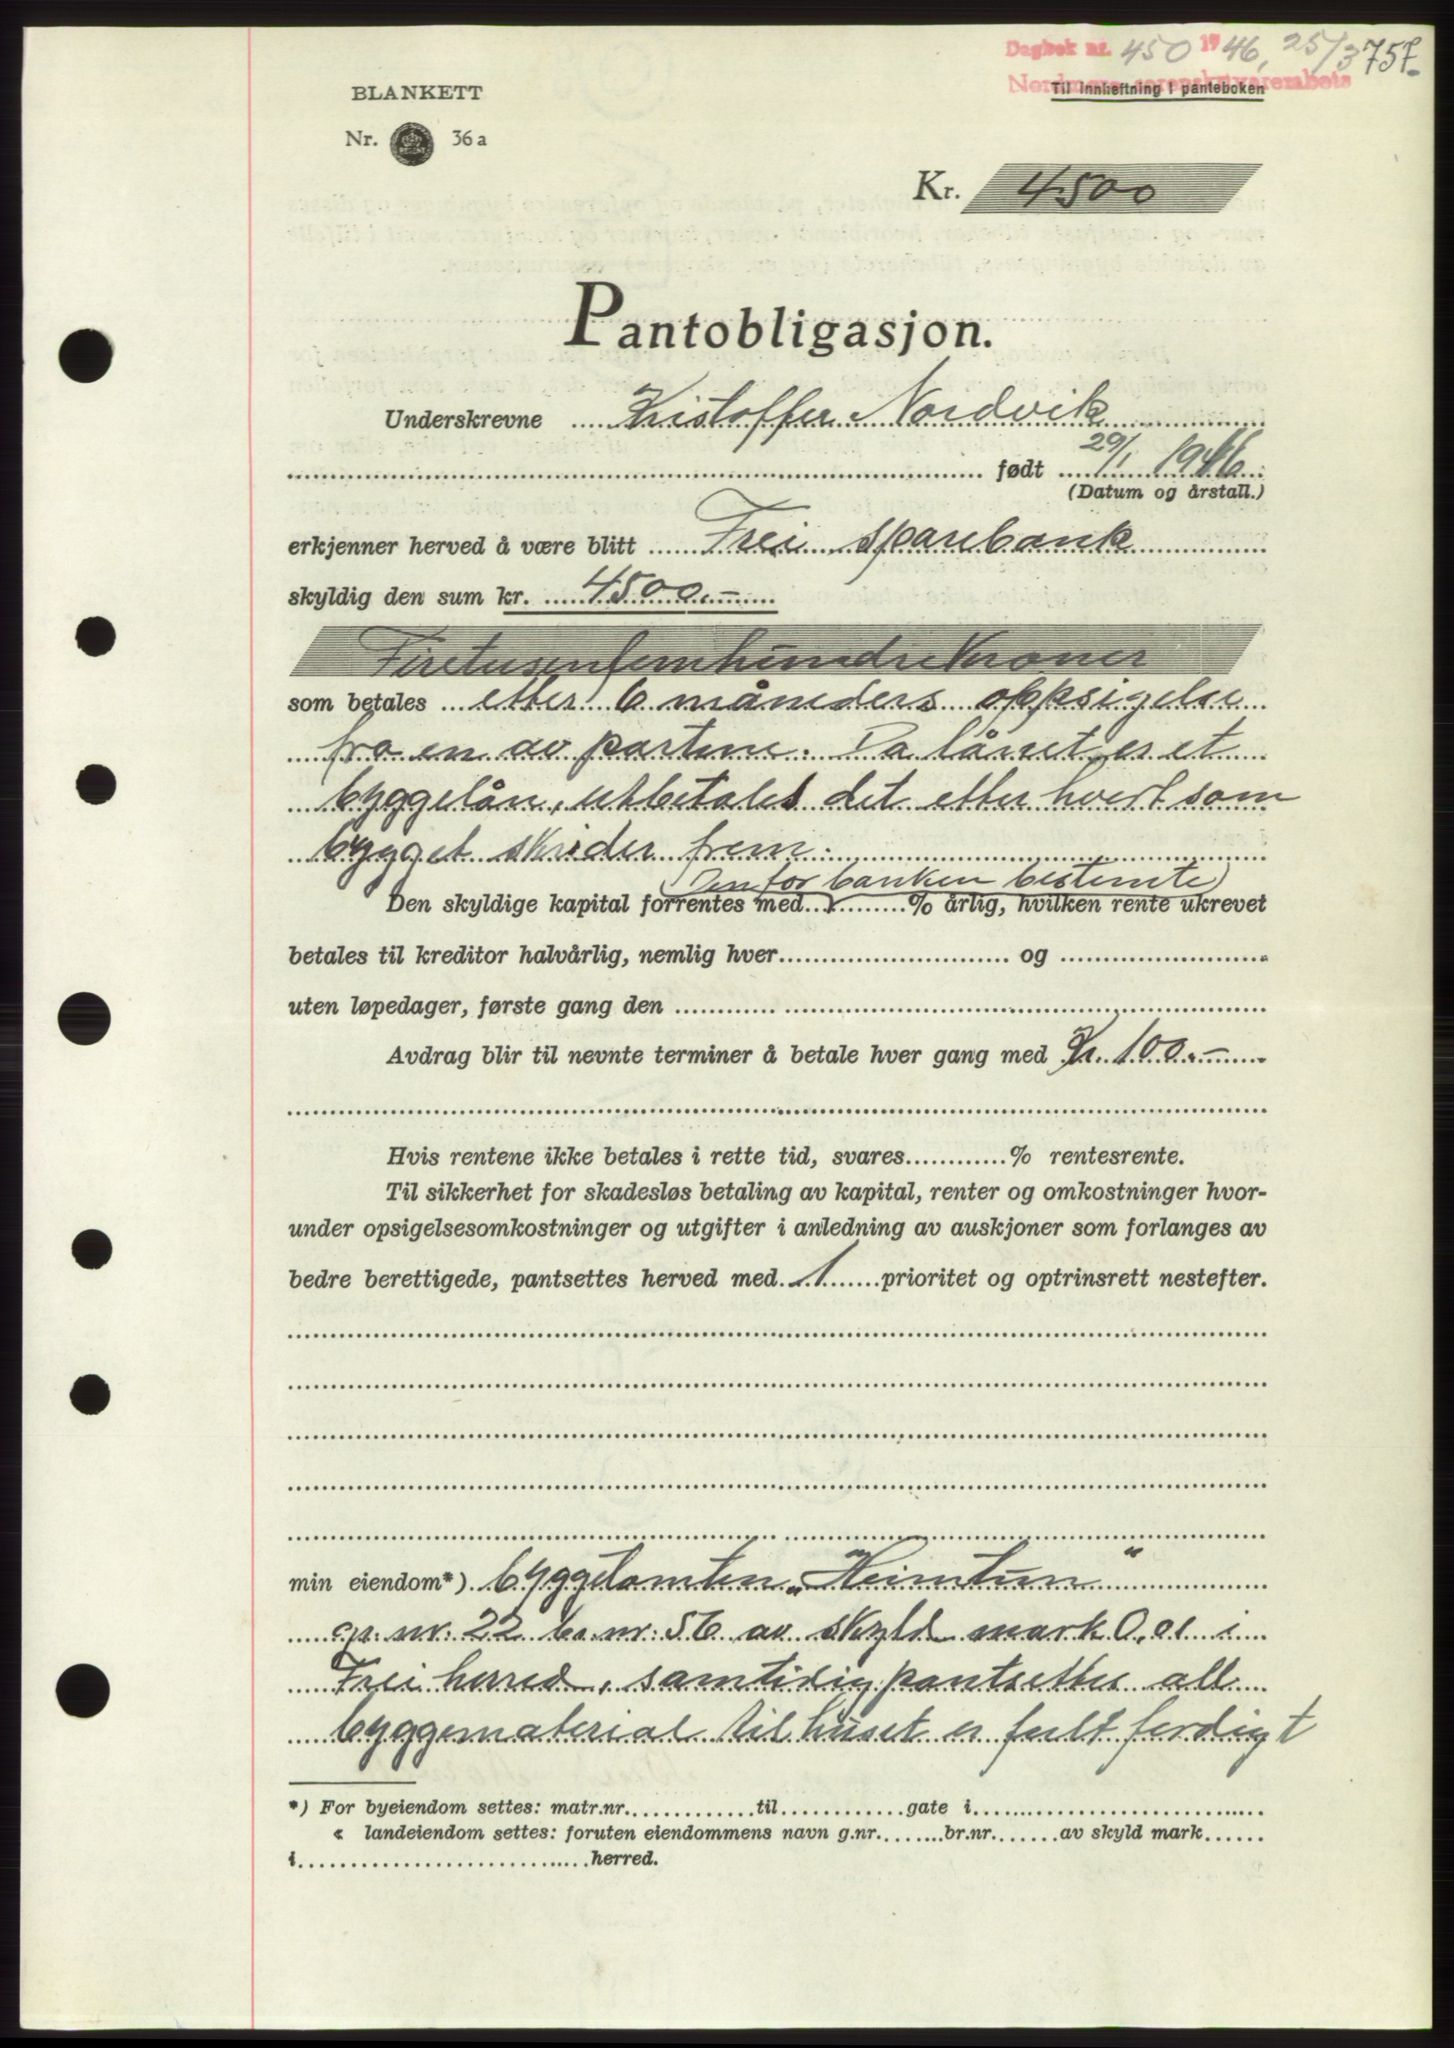 Dagbok nr. 450 1946, 25/3 757.
Nordmøre sorenskriverembete
Til innheftning i panteboken
BLANKETT
Nr. 36 a
Kr. 4500
Pantobligasjon.
Underskrevne Kristoffer Nordvik
født 29/1 1916
(Datum og årstall.)
erkjenner herved å være blitt Frei sparebank
skyldig den sum kr. 4500.-
Firetusenfemhundrekroner
som betales etter 6 måneders oppsigelse
fra en av partene. Da lånet er et
byggelån, utbetales det etter hvert som
bygget skrider frem.
(Den for banken bestemte)
Den skyldige kapital forrentes med % årlig, hvilken rente ukrevet
betales til kreditor halvårlig, nemlig hver og
uten løpedager, første gang den
Avdrag blir til nevnte terminer å betale hver gang med Kr. 100.-
Hvis rentene ikke betales i rette tid, svares % rentesrente.
Til sikkerhet for skadesløs betaling av kapital, renter og omkostninger hvor-
under opsigelsesomkostninger og utgifter i anledning av auskjoner som forlanges av
bedre berettigede, pantsettes herved med 1 prioritet og optrinsrett nestefter.
min eiendom*) byggetomten „Heimtun"
gr. nr. 22 br. nr. 56 av skyld mark 0,01 i
Frei herred, samtidig pantsettes all
byggematerial til huset er fullt ferdigt
*) For byeiendom settes: matr.nr. til gate i
« landeiendom settes: foruten eiendommens navn g.nr. br.nr. av skyld mark
i herred.